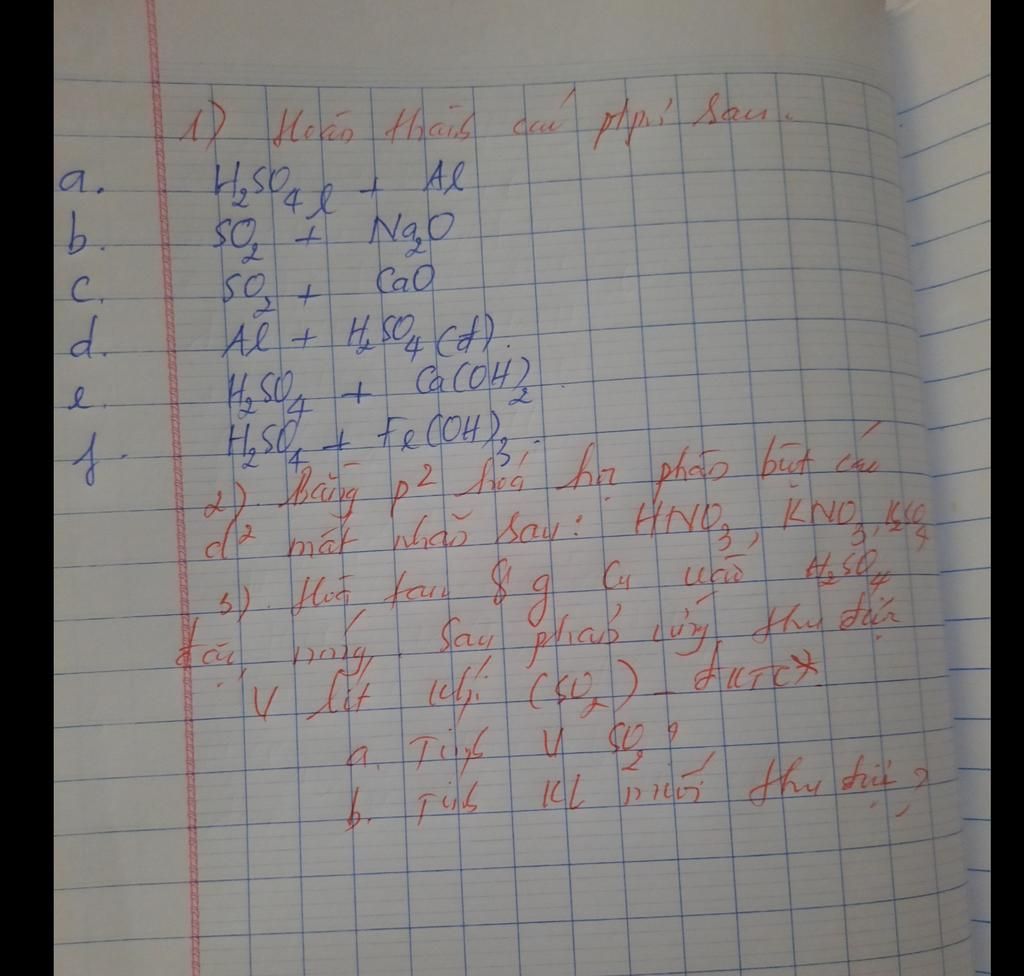 1) Hoàn thành các ptpứ sau.
a. H₂SO₄ l + Al
b. SO₂ + Na₂O
c. SO₂ + CaO
d. Al + H₂SO₄ (đ).
e. H₂SO₄ + Ca(OH)₂.
f. H₂SO₄ + Fe(OH)₃.
2). Bằng p² hoá học phân biệt các
d² mất nhãn sau: HNO₃, KNO₃, K₂SO₄
3). Hoà tan 8 g Cu vào H₂SO₄
đặc nóng, sau phản ứng thu được
V lít khí (SO₂) - đktc
a. Tính V SO₂ ?
b. Tính KL muối thu được ?